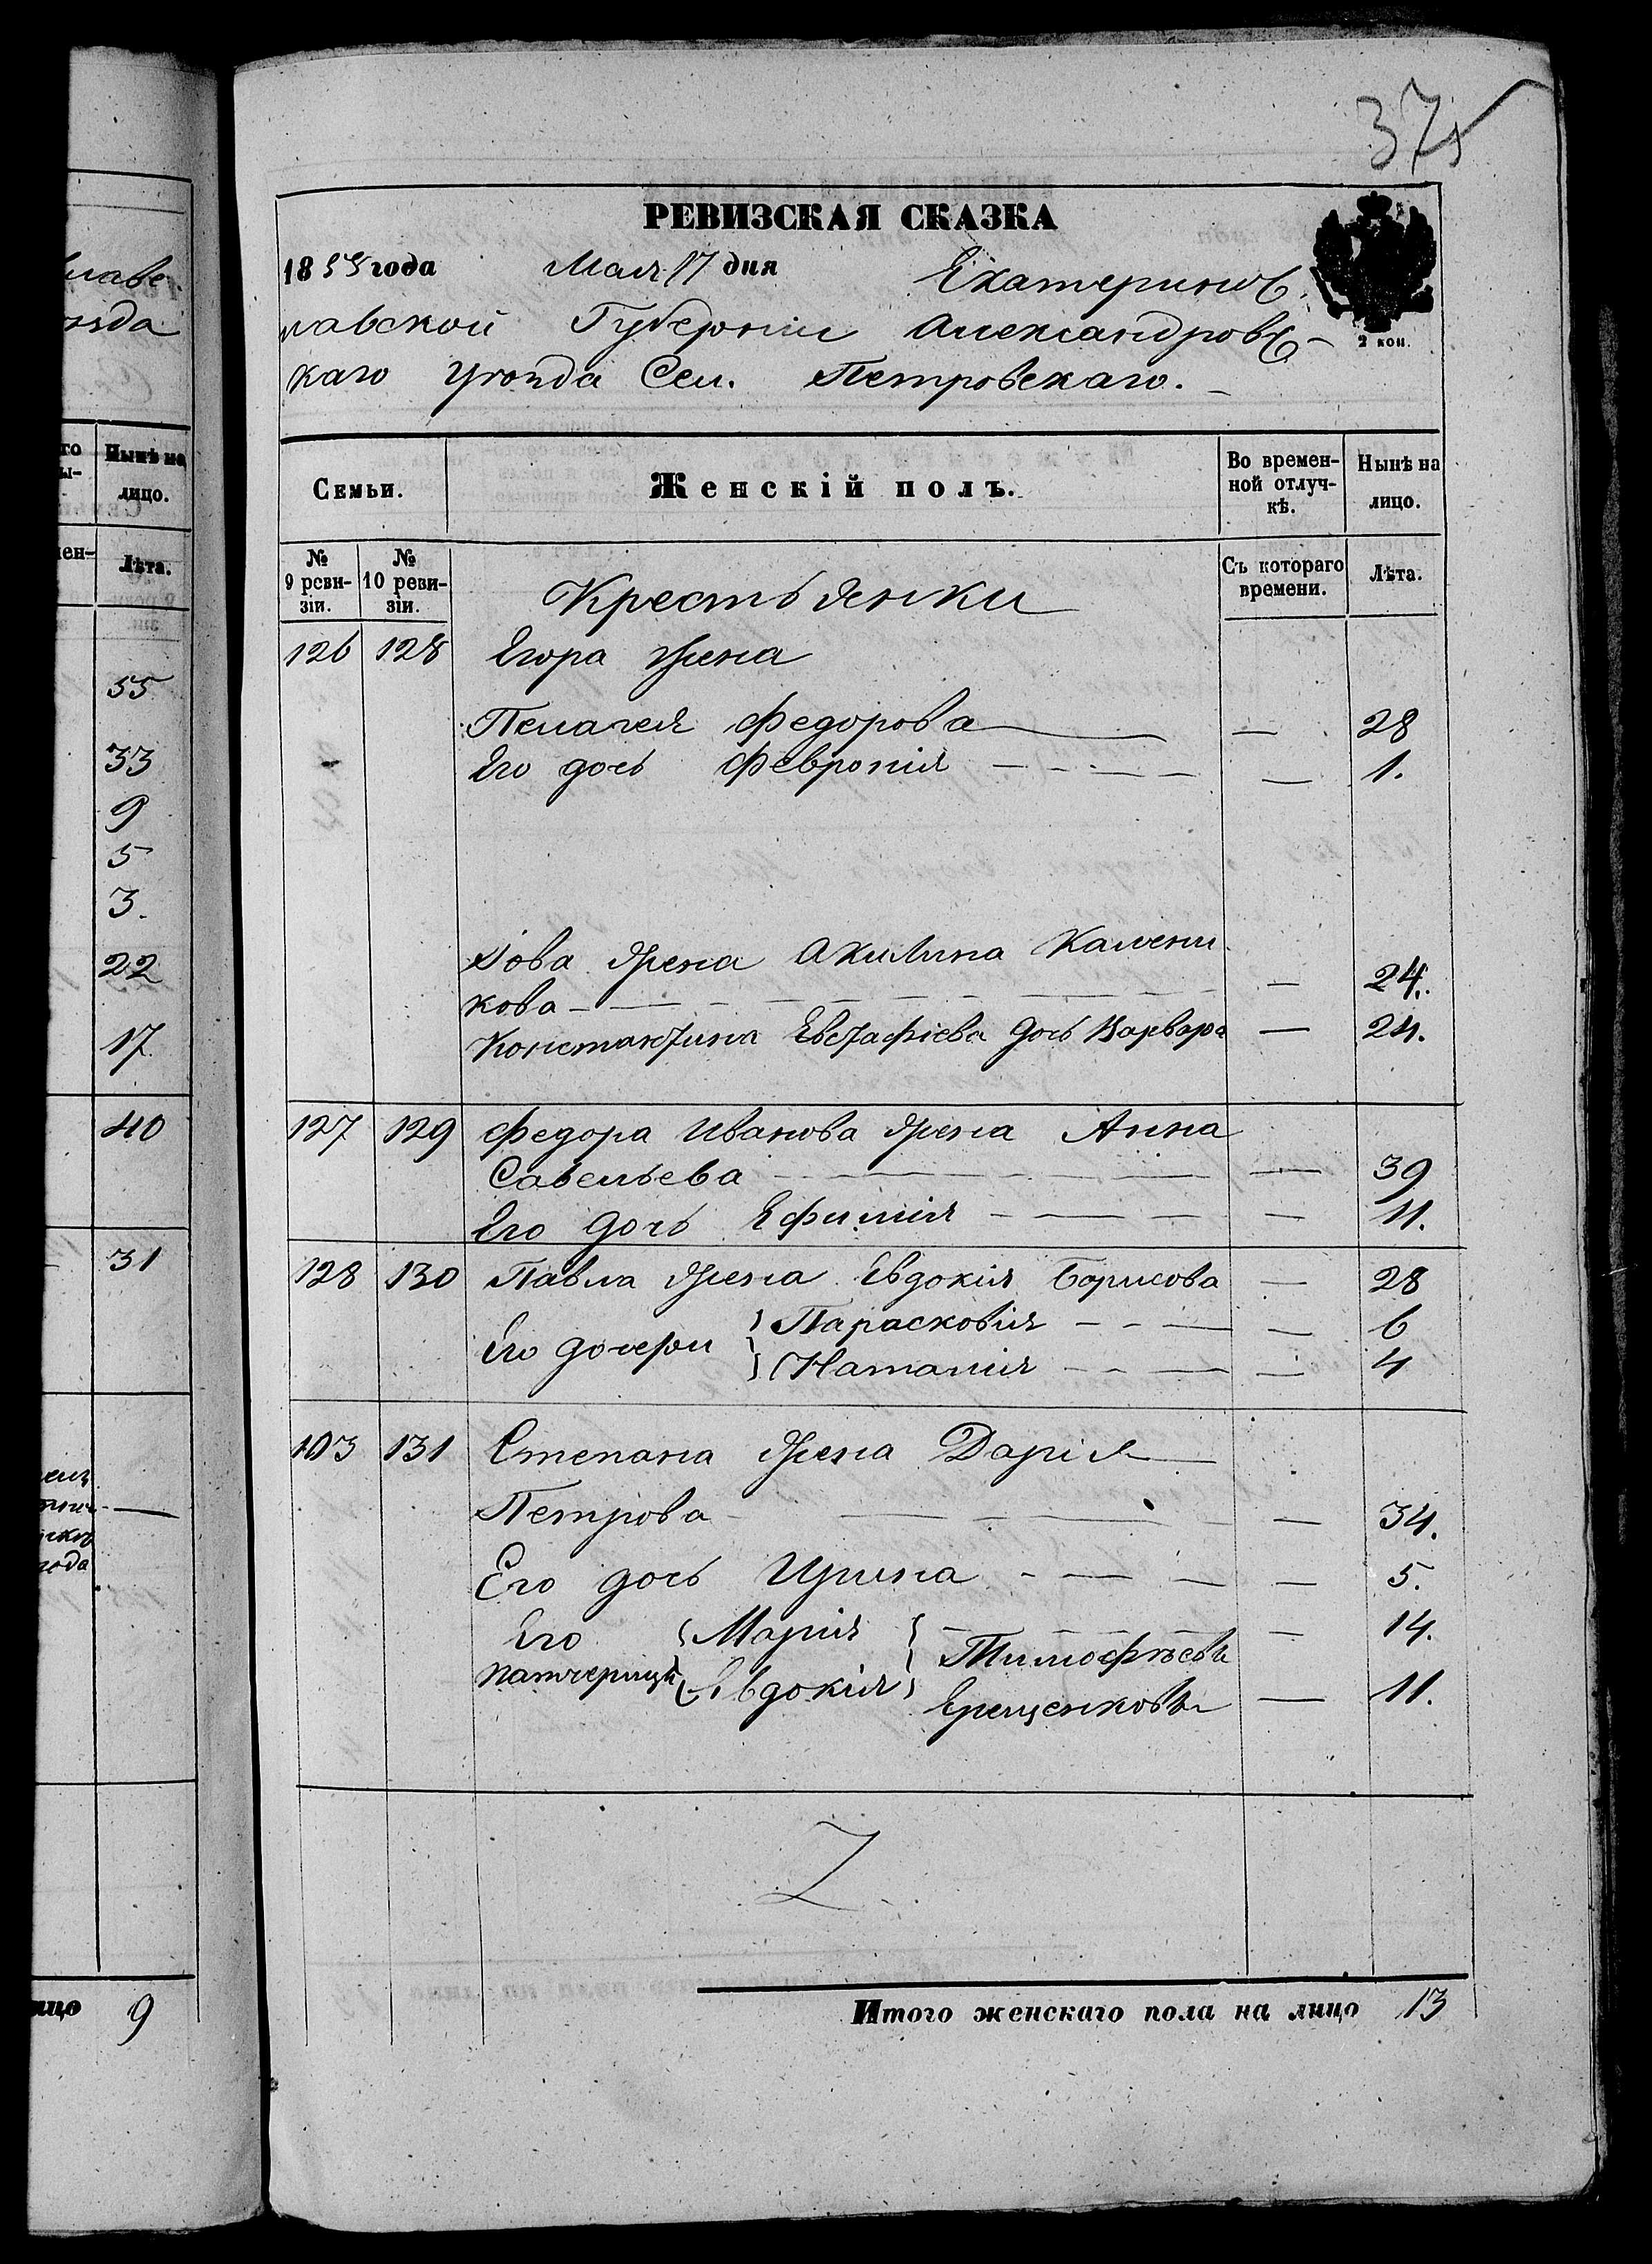 375
РЕВИЗСКАЯ СКАЗКА
1858 года Мая 17 дня Екатеринос
лавской Губерніи Александровс
2 коп.
каго Уѣзда Сел. Петровскаго.
лаве
ѣзда
Семьи.
Женскій полъ.
Во времен-
ной отлуч-
кѣ.
Нынѣ на
лицо.
№
9 реви-
зіи.
№
10 реви-
зіи.
Съ котораго
времени.
Лѣта.
Крестьянки
126 128 Егора жена
Пелагея Федорова — 28
Его дочь Февронія — 1.
Іова жена Акилина Калени
кова — 24.
Константина Евстафіева дочь Варвара — 24.
127 129 Федора Иванова жена Анна
Савельева — 39
Его дочь Ефимія — 11.
128 130 Павла жена Евдокія Борисова — 28
Его дочери Парасковія — 6
Наталія — 4
103 131 Степана жена Дарія
Петрова — 34.
Его дочь Ирина — 5.
Его Марія — 14.
патчерицы Евдокія Тимофѣевы
Ерещенковы — 11.
Z
Итого женскаго пола на лицо 13
го
ы-
Нынѣ на
лицо.
мен-
Лѣта.
55
33
9
5
3.
22
17
40
31
года
лицо 9